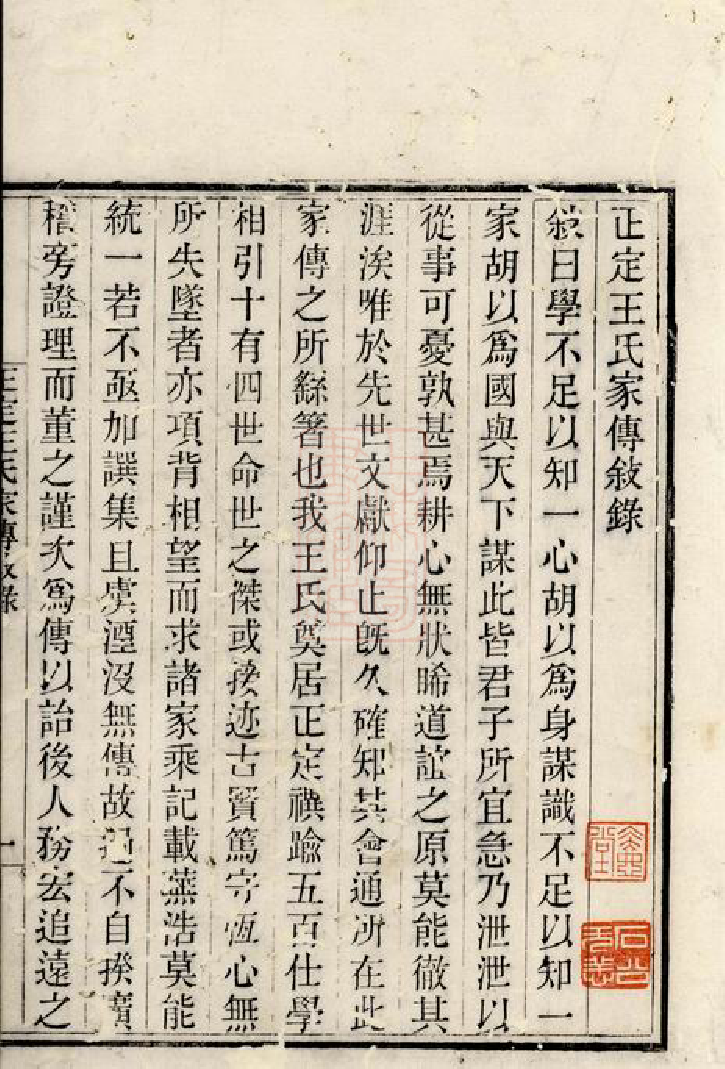 正定王氏家傳敘錄
敘曰學不足以知一心胡以爲身謀識不足以知一
家胡以爲國與天下謀此皆君子所宜急乃泄泄以
從事可憂孰甚焉耕心無狀睎道誼之原莫能徹其
涯涘唯於先世文獻仰止旣久確知其會通所在此
家傳之所繇箸也我王氏奠居正定禩踰五百仕學
相引十有四世命世之傑或接迹古賢篤守恆心無
所失墜者亦項背相望而求諸家乘記載蕪浩莫能
統一若不亟加譔集且虞湮沒無傳故過不自揆實
稽旁證理而董之謹次爲傳以詒後人務宏追遠之
正定王氏家傳敘錄
一